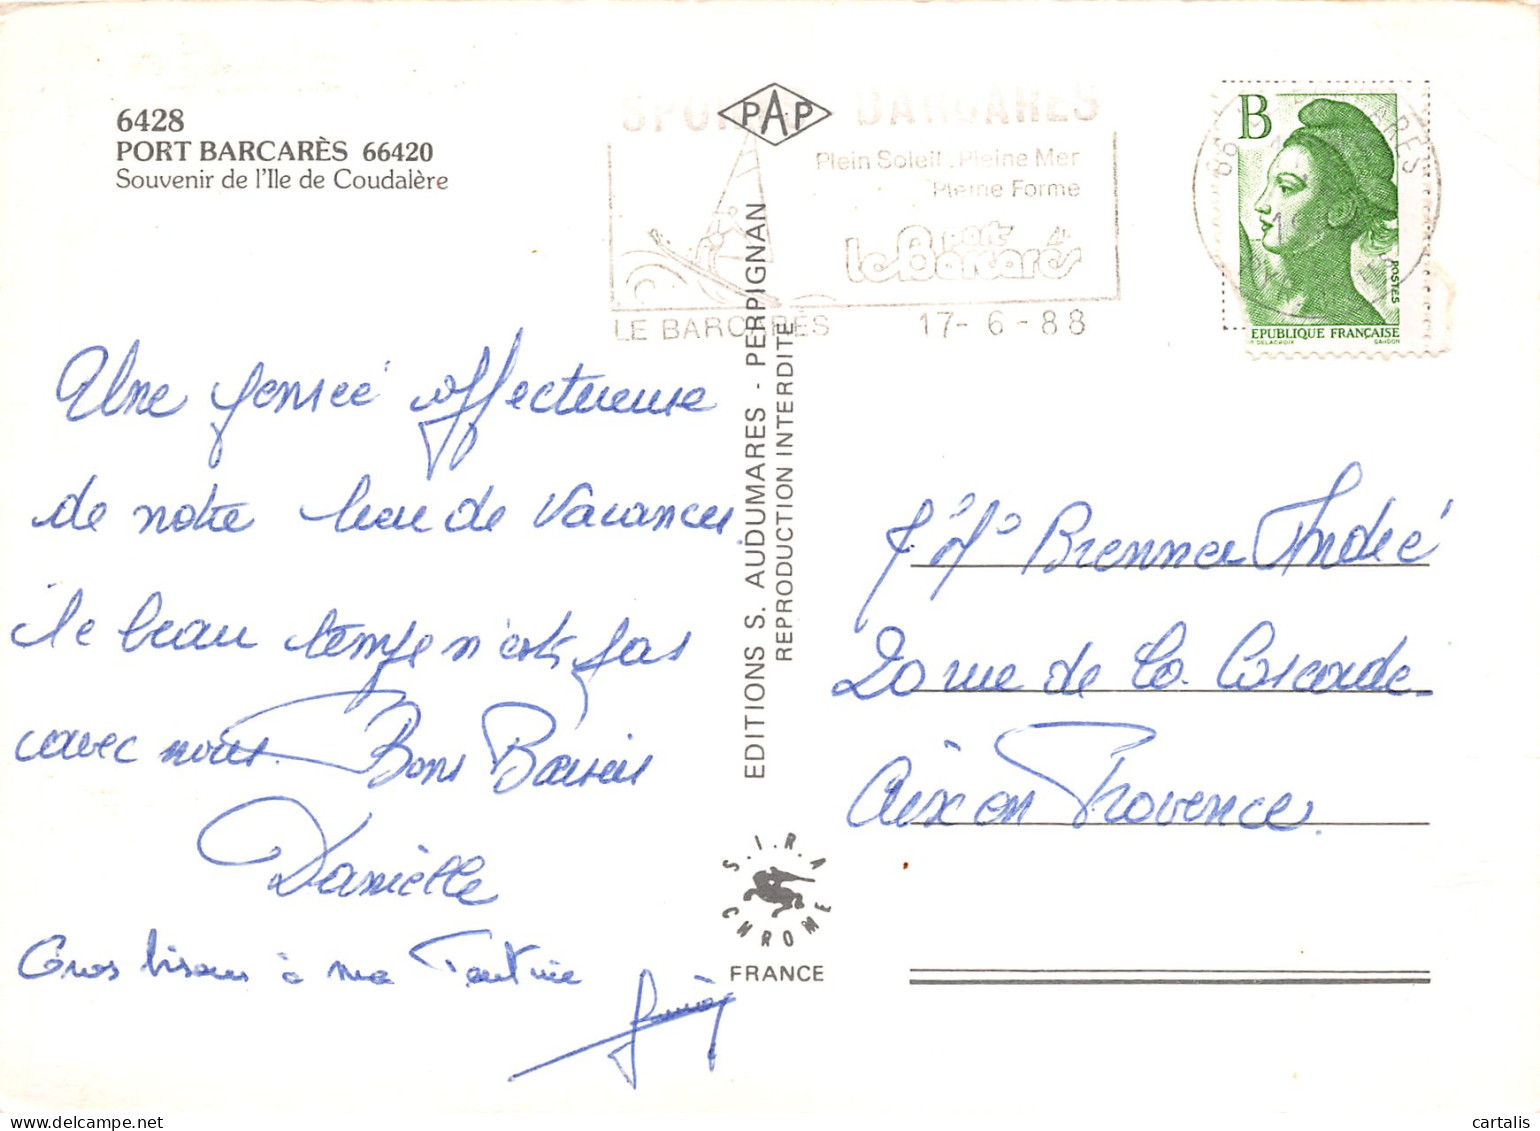 6428
PORT BARCARÈS 66420
Souvenir de l'Ile de Coudalère
PAP
SPORTS BARCARES
Plein Soleil. Pleine Mer
Pleine Forme
le port Barcarès
LE BARCARÈS 17-6-88
B
POSTES
REPUBLIQUE FRANÇAISE
DELACROIX GANDON
Une pensée affectueuse
de notre lieu de Vacances.
le beau temps n'est pas
avec nous. Bons Baisers
Danièlle
Gros bisous à ma Tantine
EDITIONS S. AUDUMARES - PERPIGNAN
REPRODUCTION INTERDITE
S.I.R.A
CHROME
FRANCE
Brenner André
20 rue de la Cascade
Aix en Provence.